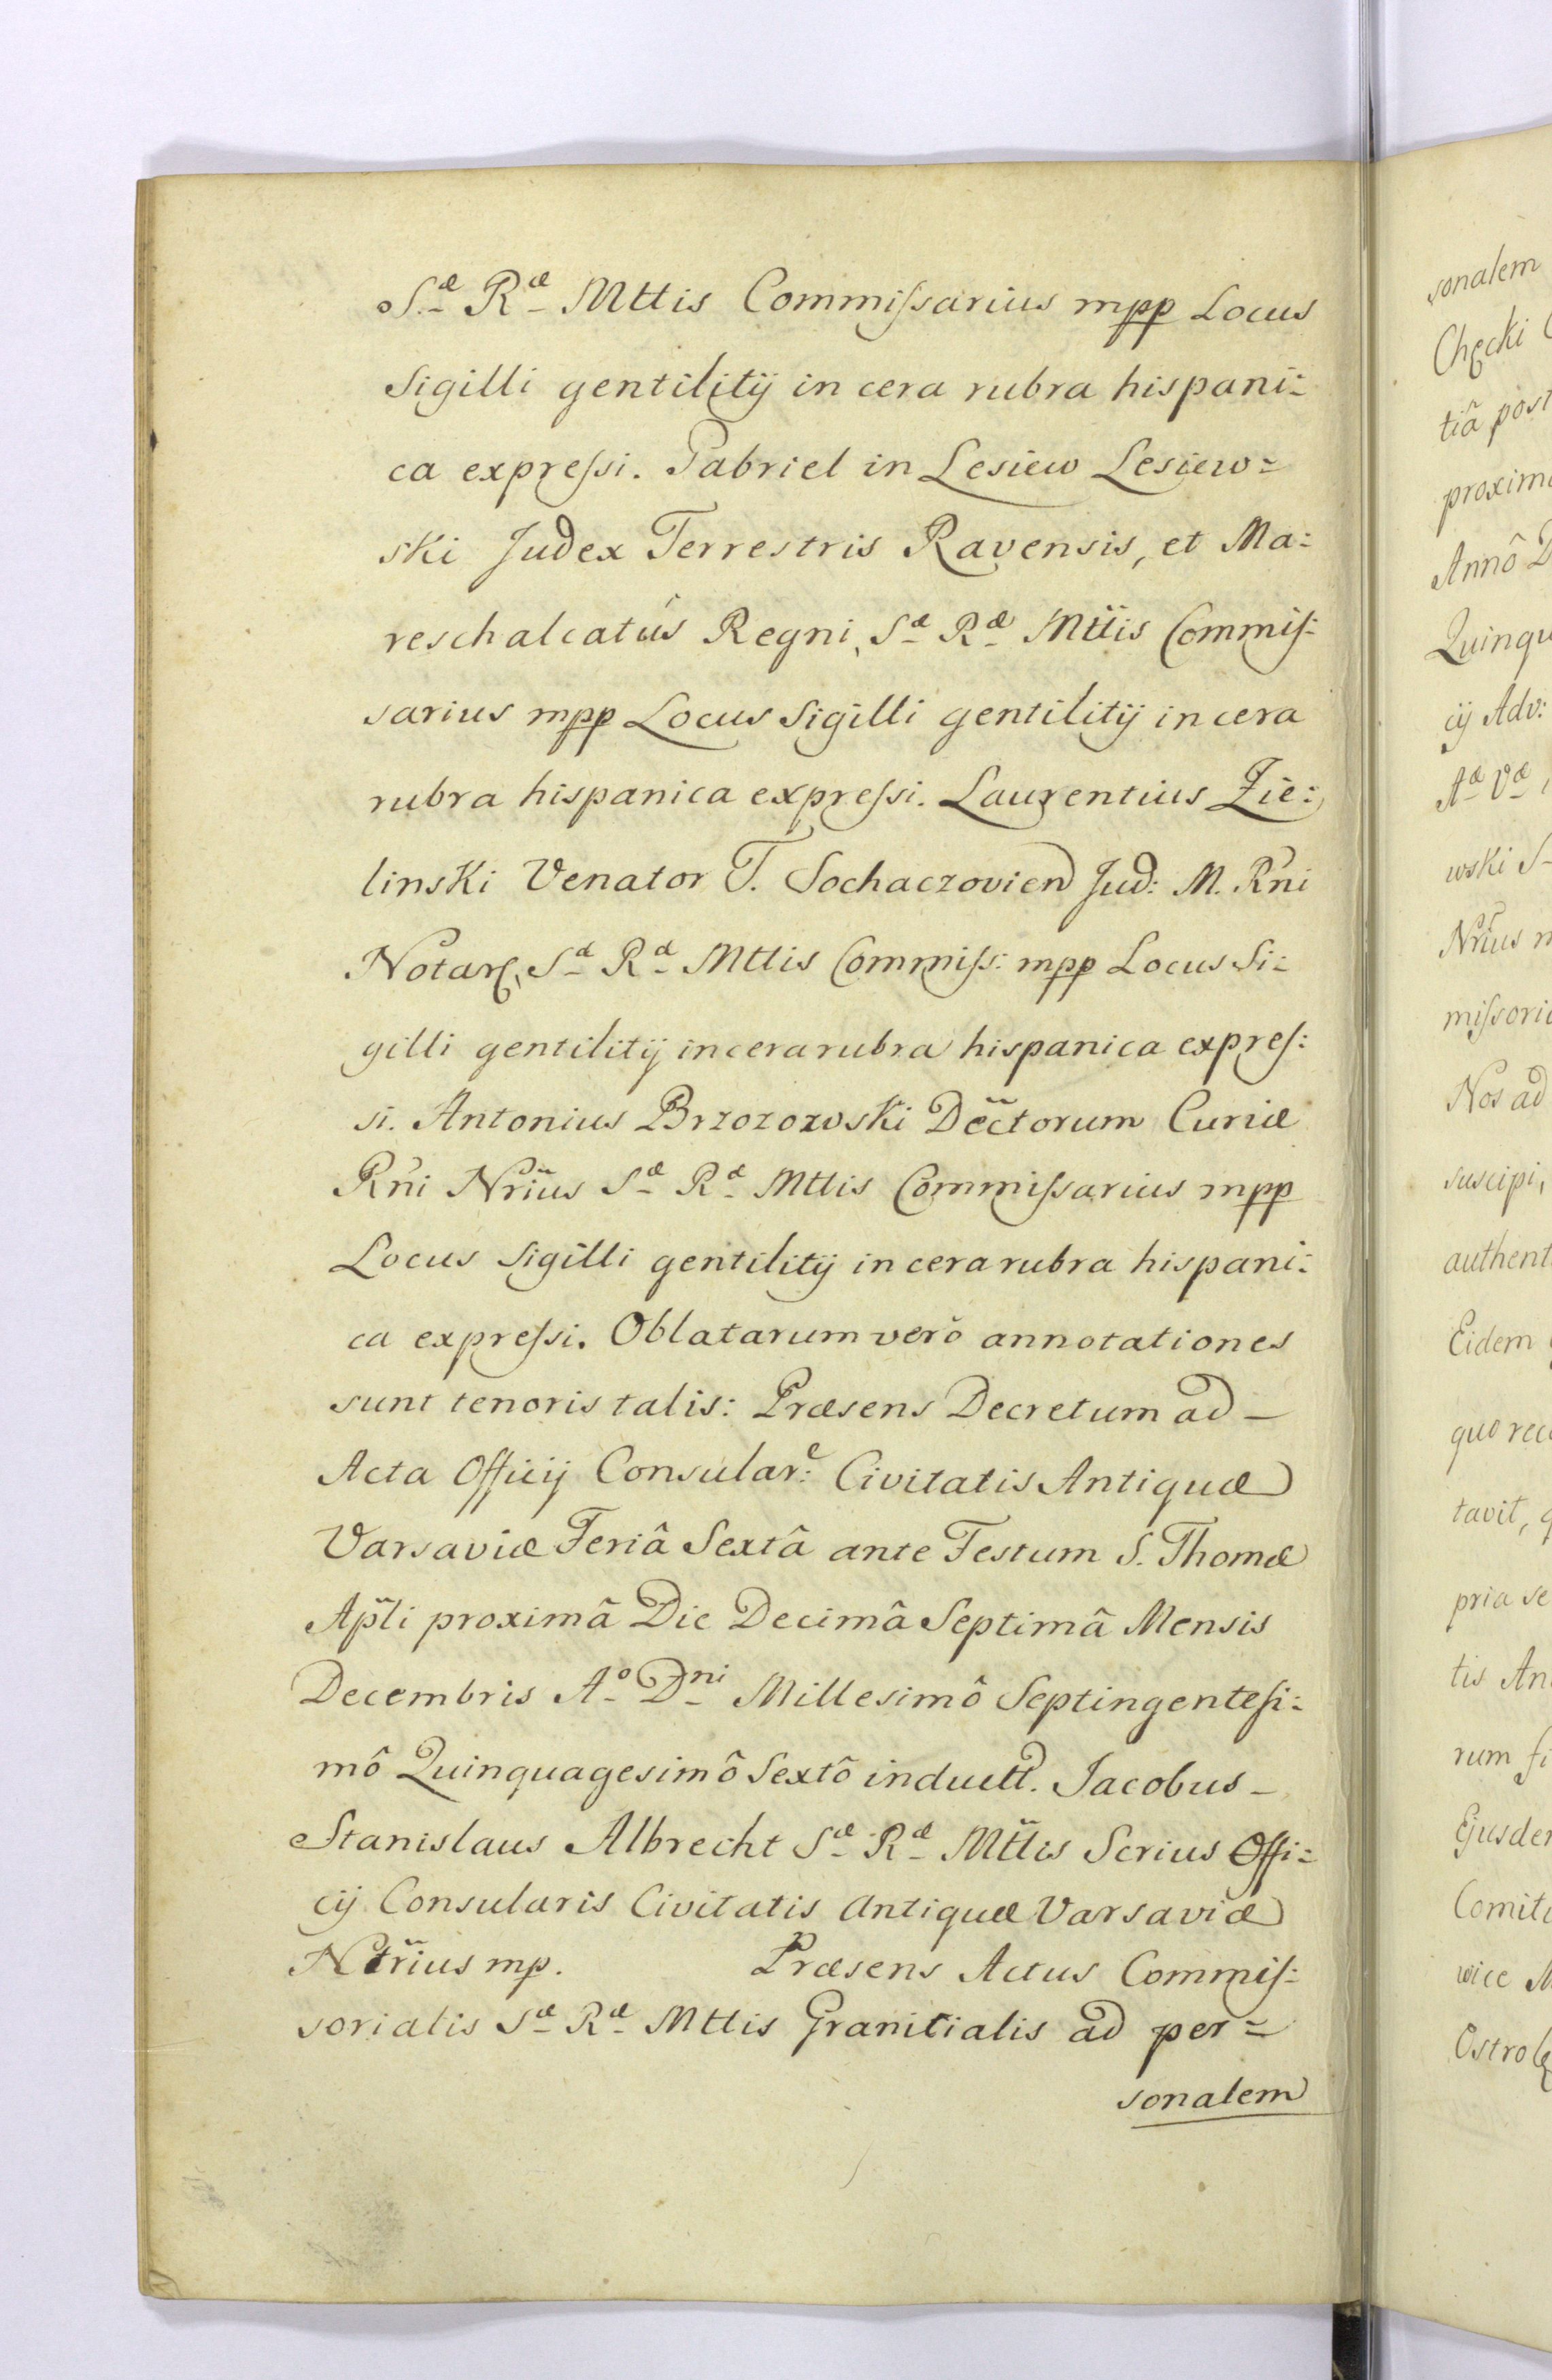 Sæ Ræ Mttis Commiſsarius mpp Locus
Sigilli gentilitij in cera rubra hispani:
ca expreſsi. Gabriel in Lesiew Lesiew=
ski Judex Terrestris Ravensis, et Ma:
reschalcatûs Regni, Sæ Ræ Mttis Commiſ:
sarius mpp Locus Sigilli gentilitij in cera
rubra hispanica expreſsi. Laurentius Zie:
linski Venator T. Sochaczovien Jud: M. Rñi
Notar, Sæ Ræ Mttis Commiſs: mpp Locus Si:
gilli gentilitij in cera rubra hispanica expreſ:
si. Antonius Brzozowski Dectorum Curiæ
Rñi Nrius Sæ Ræ Mttis Commiſsarius mpp
Locus Sigilli gentilitij in cera rubra hispani:
ca expreſsi. Oblatarum verò annotationes
sunt tenoris talis: Præsens Decretum ad
Acta Officij Consulare: Civitatis Antiquæ
Varsaviæ Feriâ Sextâ ante Festum S. Thomæ
Apli proximâ Die Decimâ Septimâ Mensis
Decembris Ao Dni Millesimô Septingenteſi:
mô Quinquagesimô Sextô inductt. Jacobus
Stanislaus Albrecht Sæ Ræ Mttis Scrius Offi:
cij Consularis Civitatis Antiquæ Varsaviæ
Ntrius mp. Præsens Actus Commiſ:
sorialis Sæ Ræ Mttis Granicialis ad per=
sonalem
sonalem
Chęcki
tiã post
Annô
cij Adv:
Aæ Væ
wski
Nrius
Nos ad
suscipi,
Eidem
quo
tavit,
pria se
tis
rum
wice